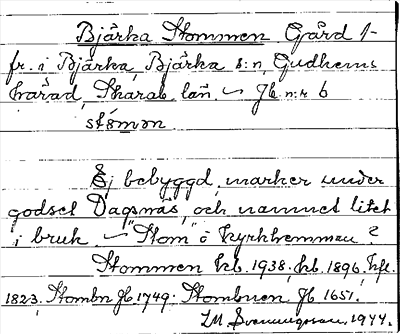 Bjärka Stommen Gård 1-
fr. i Bjärka, Bjärka s:n, Gudhems
härad, Skarab. län. – Jb n:r 6
stǒmǝn.
Ej bebyggd, marker under
godset Dagsnäs, och namnet litet
i bruk. – "Stom" = Kyrkhemman?
Stommen kb. 1938; kb. 1896, hfl.
1823, Stombn Jb 1749. Stombnen Jb 1651.
I.M. Svenungsson, 1944.